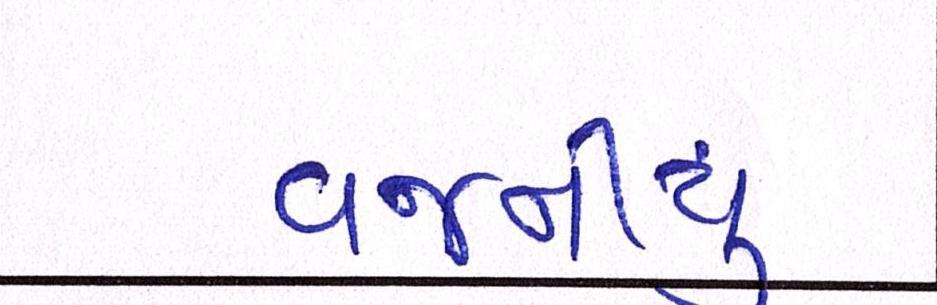 વજનીયું